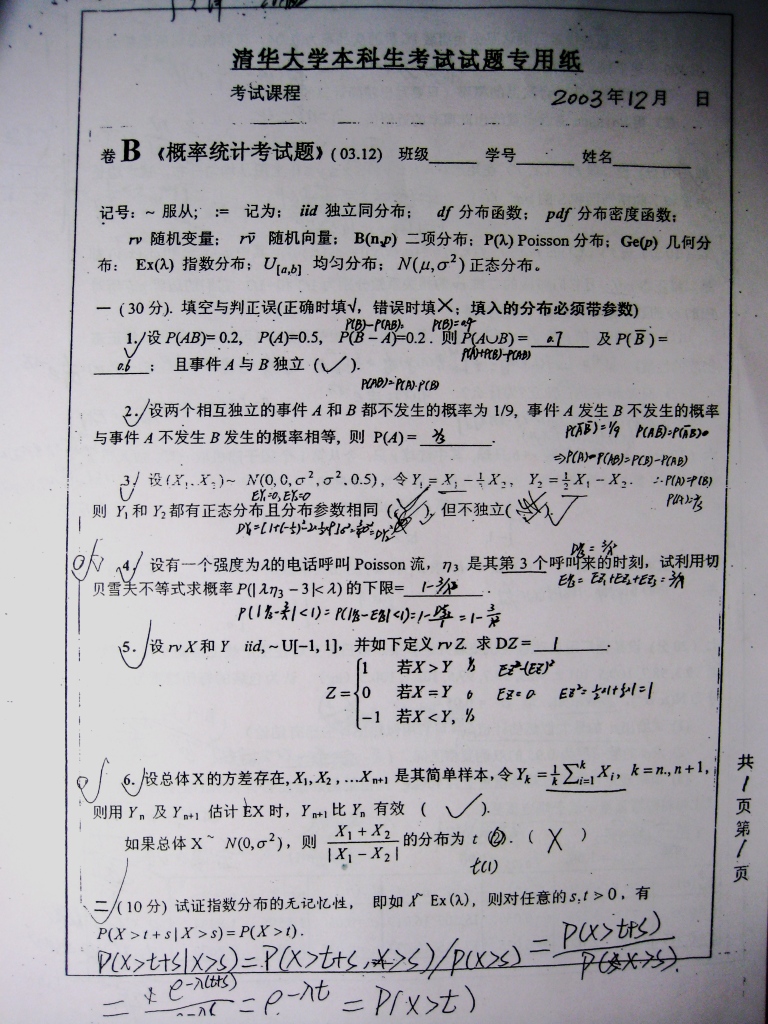 清华大学本科生考试试题专用纸
考试课程 2003年12月 日
卷B 《概率统计考试题》(03.12) 班级 学号 姓名
记号：~ 服从； := 记为； iid 独立同分布； df 分布函数； pdf 分布密度函数；
rv 随机变量； rv̄ 随机向量； B(n,p) 二项分布；P(λ) Poisson 分布；Ge(p) 几何分
布： Ex(λ) 指数分布；U[a,b] 均匀分布；N(μ,σ²)正态分布。
一 (30分). 填空与判正误(正确时填√，错误时填✕；填入的分布必须带参数)
P(B)-P(AB), P(B)=0.4
1. 设 P(AB)= 0.2, P(A)=0.5, P(B－A)=0.2 . 则 P(A∪B) = 0.7 及 P(B̄) =
P(A)+P(B)-P(AB)
0.6 ； 且事件 A 与 B 独立 (✓).
P(AB)=P(A)·P(B)
2. 设两个相互独立的事件 A 和 B 都不发生的概率为 1/9, 事件 A 发生 B 不发生的概率
与事件 A 不发生 B 发生的概率相等, 则 P(A) = 2/3 .
P(ĀB̄)=1/9 P(AB̄)=P(ĀB)
⇒P(A)-P(AB)=P(B)-P(AB)
3. 设 (X₁, X₂)~ N(0,0,σ²,σ².0.5)，令 Y₁ = X₁ - ½X₂, Y₂ = ½X₁ - X₂. ∴P(A)=P(B)
EY₁=0, EY₂=0 P(A)=2/3
则 Y₁ 和 Y₂ 都有正态分布且分布参数相同 ( ), 但不独立( ) ✓
4. 设有一个强度为λ的电话呼叫 Poisson 流，η₃ 是其第 3 个呼叫来的时刻, 试利用切
贝雪夫不等式求概率 P(| λη₃ − 3|< λ) 的下限= 1-3/λ² .
5. 设 rv X 和 Y iid, ~ U[−1, 1]，并如下定义 rv Z. 求 DZ = 1 .
Z = { 1 若X > Y ½ EZ²-(EZ)²
0 若X = Y 0 EZ=0 EZ²=½·1+½·1=1
−1 若X < Y, ½
6. 设总体 X 的方差存在, X₁, X₂ , …Xₙ₊₁ 是其简单样本, 令 Yₖ = 1/k ∑ᵢ₌₁ᵏ Xᵢ, k = n., n+1,
则用 Yₙ 及 Yₙ₊₁ 估计 EX 时, Yₙ₊₁ 比 Yₙ 有效 ( ✓ ).
如果总体 X ~ N(0,σ²)，则 (X₁ + X₂)/|X₁ − X₂| 的分布为 t (2). ( X )
t(1)
二 (10分) 试证指数分布的无记忆性， 即如 X~ Ex(λ)，则对任意的 s,t > 0，有
P(X > t + s | X > s) = P(X > t).
P(X>t+s|X>s)=P(X>t+s,X>s)/P(X>s) = P(X>t+s)/P(X>s)
= e^-λ(t+s)/e^-λs = e^-λt = P(X>t)
共1页第1页